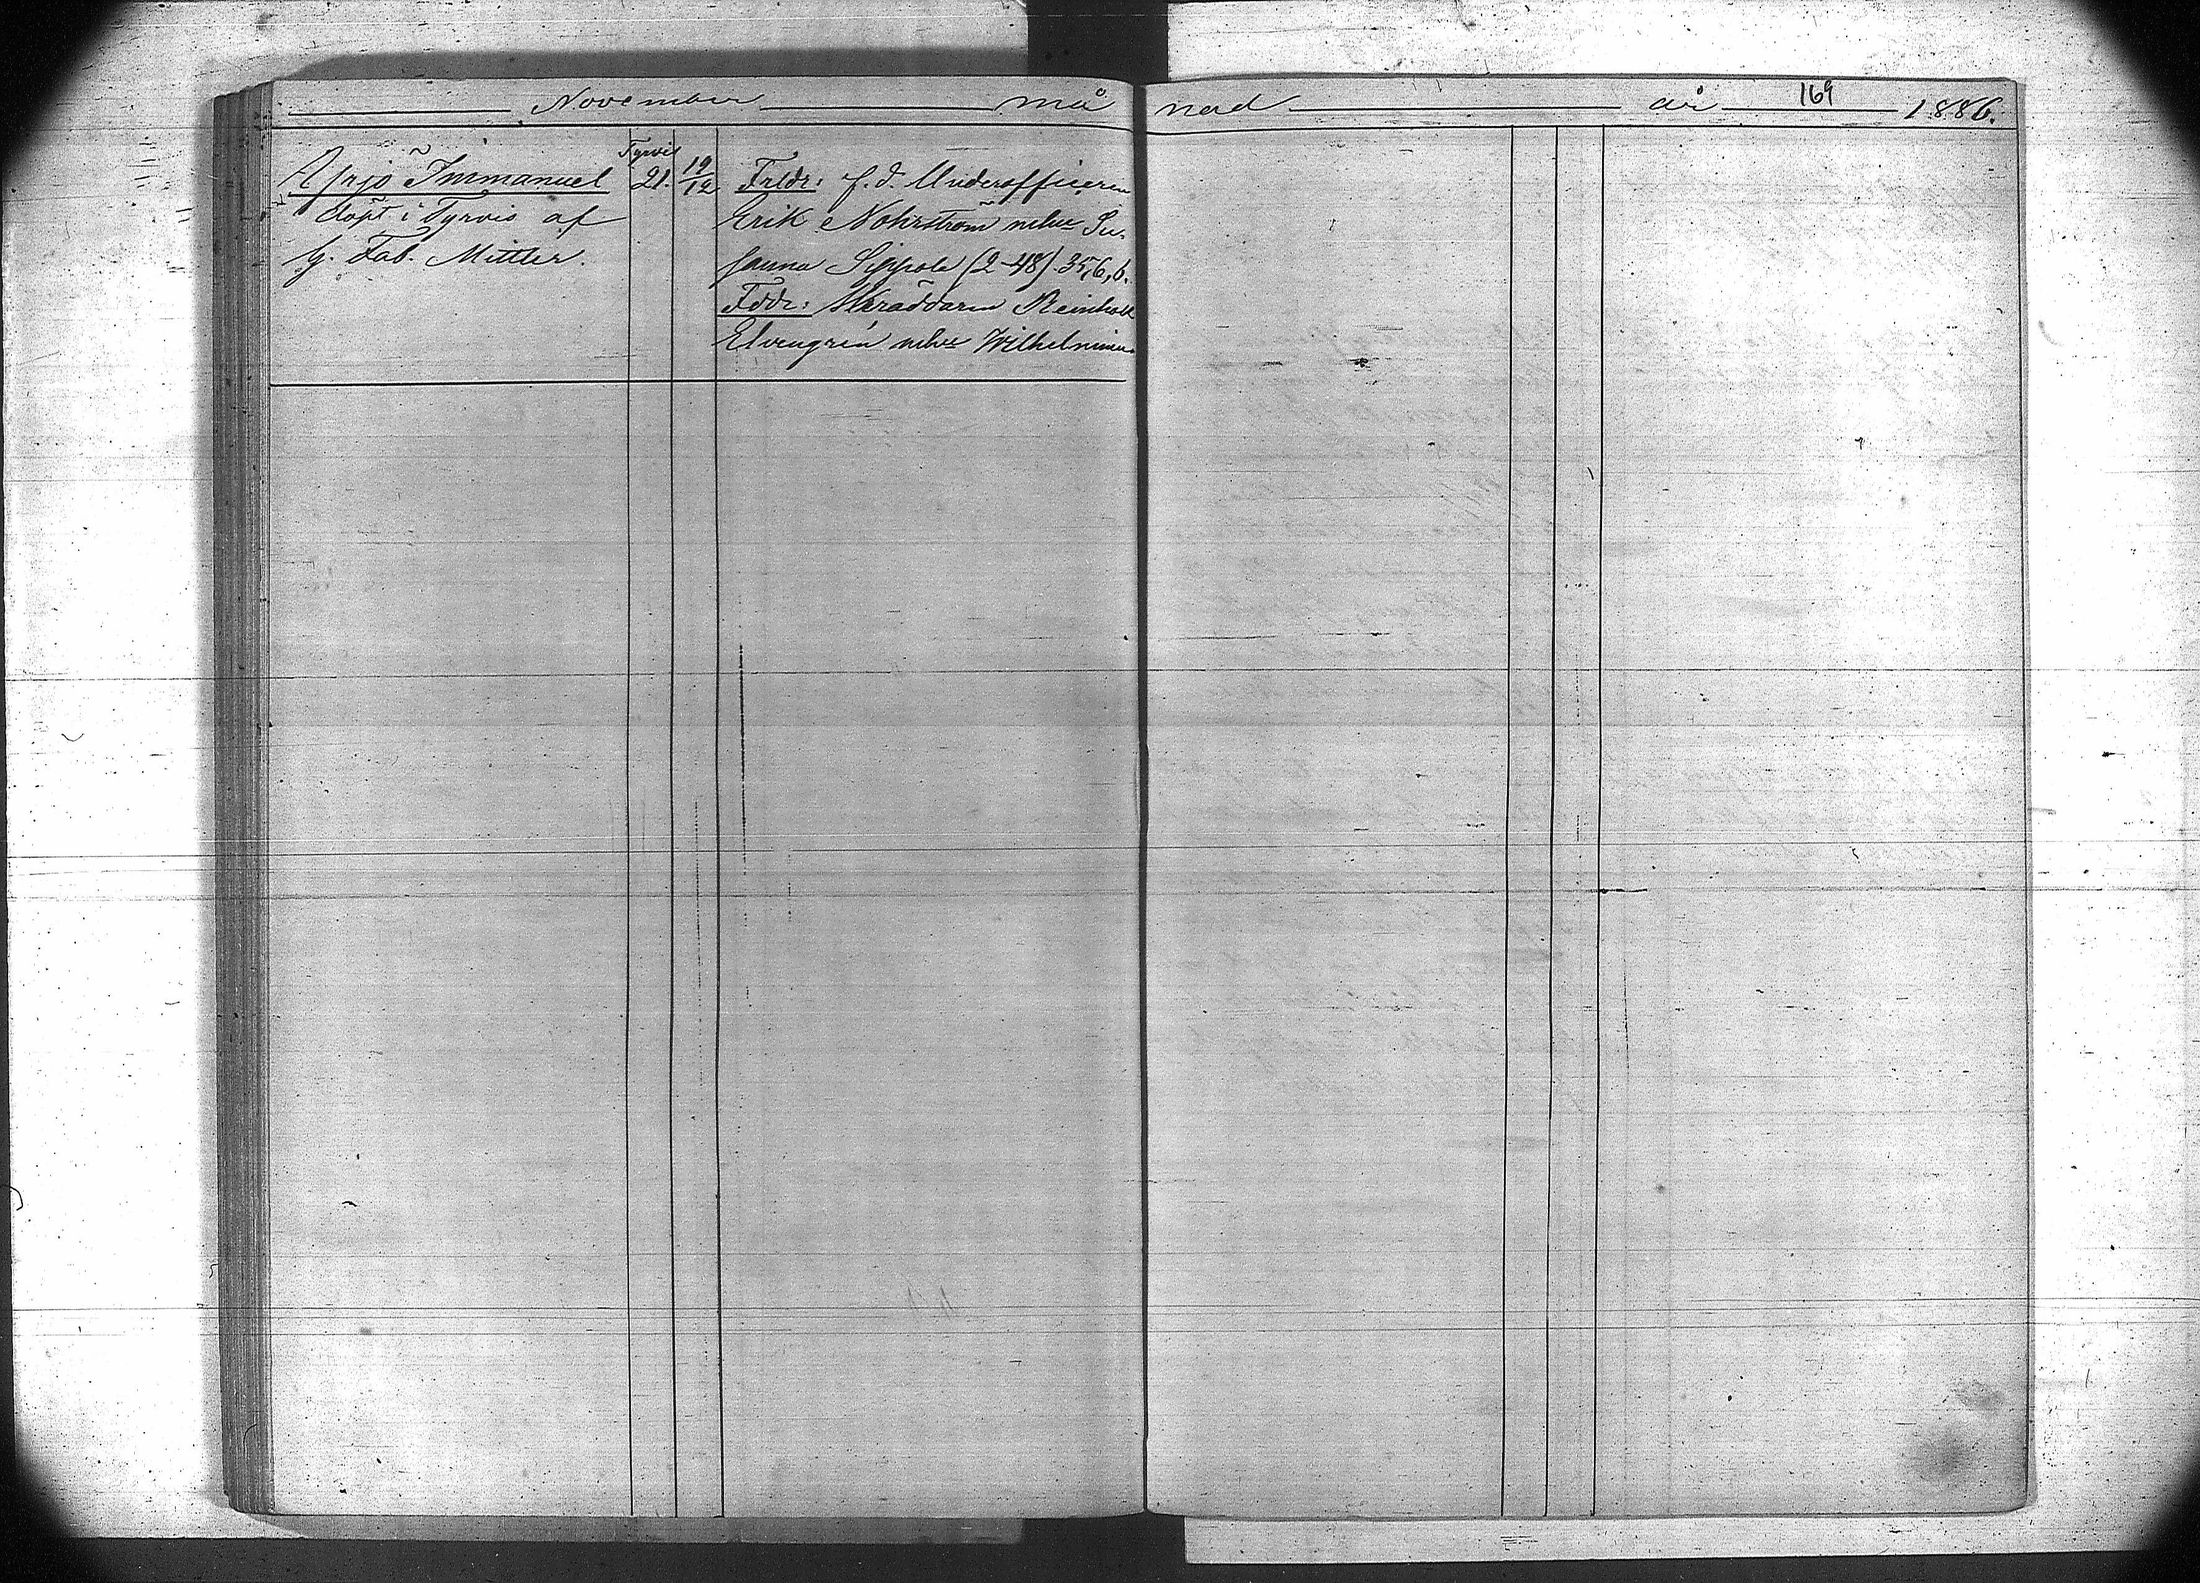 November månad år 1886.
169
Yrjö Immanuel
döpt i Tyrvis af
G. Fab. Mittler.
Tyrvis
21. 19/12
Frldr: f.d. Underofficeren
Erik Nohrström m hu Su-
sanna Sippola (2-48). 376, b.
Fddr: Skräddaren Reinhold
Elvengrén m hu Wilhelmina.